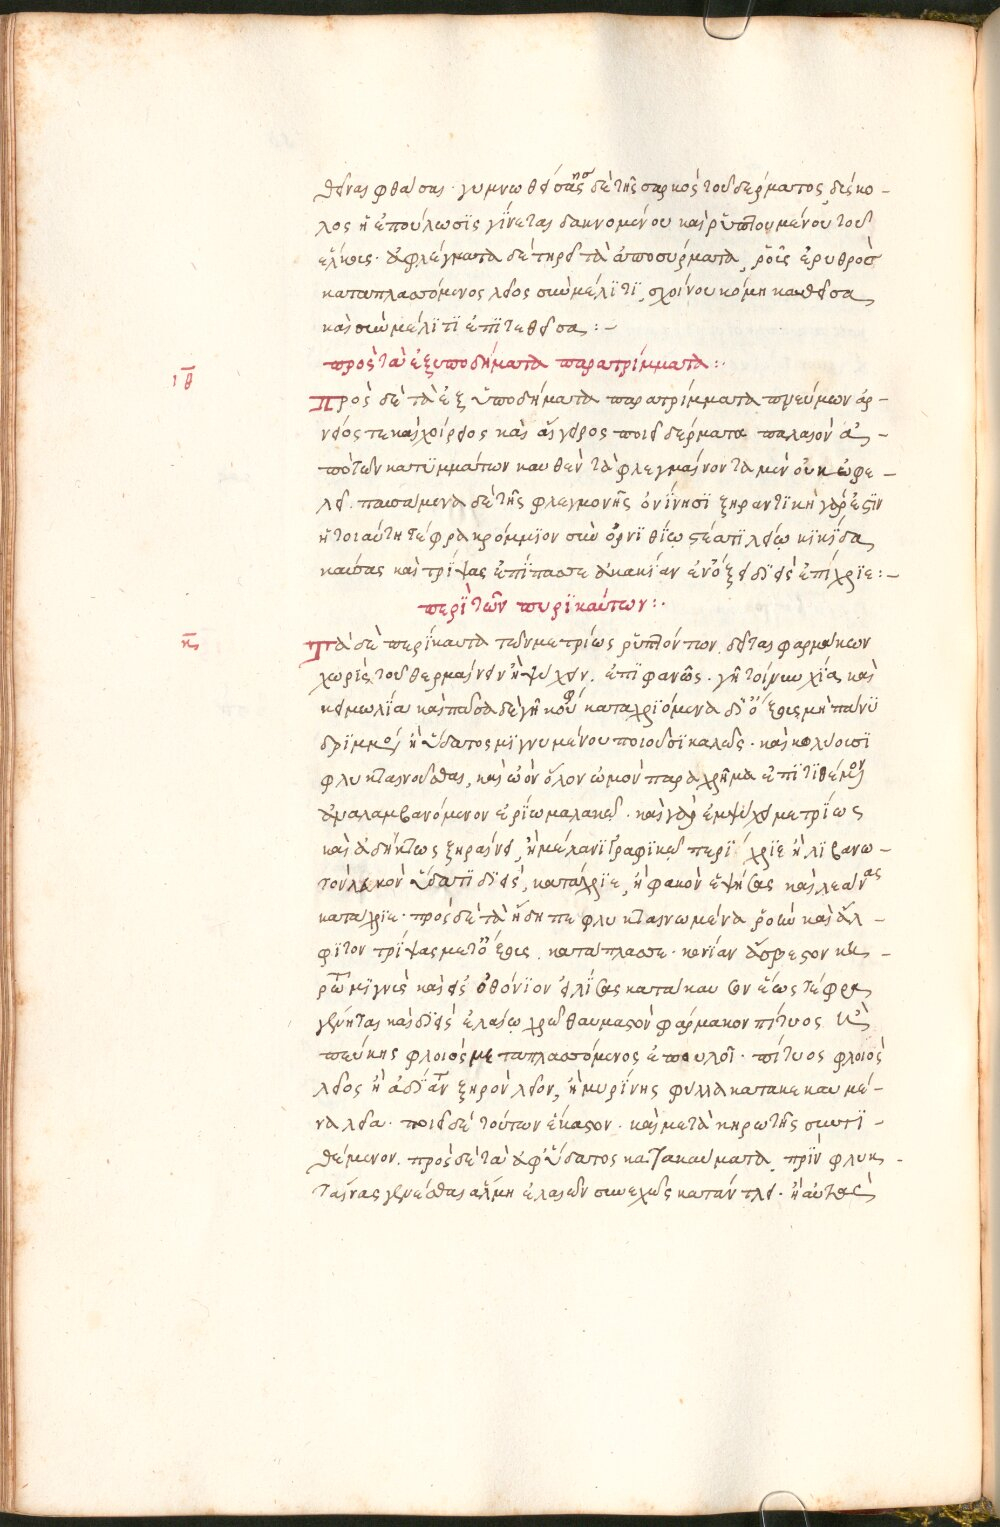 θῆναι φθάσαι· γυμνωθείσης δὲ τῆς σαρκὸς τοῦ δέρματος, δύσκο-
λος ἡ ἐπούλωσϊς γίνεται δακνομένου καὶ ῥυπτουμένου τοῦ
ἕλκους· ἀφλέγμαντα δὲ τηρεῖ τὰ ἀποσύρματα, ῥοῦς ἐρυθρὸς
καταπλασσόμενος λεῖος σὺν μέλϊτϊ, σχοίνου κόμη καυθεῖσα
καὶ σὺν μέλϊτϊ ἐπϊτεθεῖσα :-
πρὸς τὰ ἐξ ὑποδήματα παρατρίμματα :·
ιθ
Πρὸς δὲ τὰ ἐξ ὑποδήματα παρατρίμματα πνεύμων ἀρ-
νείός τε καὶ χοίρειος καὶ αἴγειρος ποιεῖ δέρματα παλαιὸν ἀ-
πὸ τῶν καττυμμάτων καυθὲν τὰ φλεγμαίνοντα μὲν οὐκ ὠφε-
λεῖ. παυσάμενα δὲ τῆς φλεγμονῆς ὀνίνησϊ ξηραντϊκὴ γάρ ἐστϊν
ἡ τοιαύτη τέφρα κρόμμϊον σὺν ὀρνϊθίῳ στέατϊ λείῳ κϊκίδα
καύσας καὶ τρίψας ἐπίπασσε ἀκακίαν ἐν ὄξει διεὶς ἐπίχρϊε :-
περὶ τῶν πυρϊκαύτων :·
κ
Τὰ δὲ περίκαυτα τῶν μετρίως ῥυπτόντων δεῖται φαρμάκων
χωρὶς τοῦ θερμαίνειν ἢ ψύχειν. ἐπϊφανῶς. γῆ τοίνυν χία καὶ
κιμωλία καὶ πᾶσα δὲ γῆ κούφη καταχρϊόμενα δι' ὄξους μὴ πάνυ
δρϊμμέος ἢ ὕδατος μϊγνυμένου ποιοῦσϊ καλῶς· καὶ κωλύουσϊ
φλυκταινοῦσθαι, καὶ ὠὸν ὅλον ὠμὸν παραχρῆμα ἐπϊτϊθέμενον
ἀναλαμβανόμενον ἐρίω μαλακῶ· καὶ γὰρ ἐμψύχει μετρίως
καὶ ἀδήκτως ξηραίνει, ἢ μέλανϊ γραφϊκῶ περϊχρϊε ἢ λϊβανω-
τὸν λευκὸν ὕδατϊ διεὶς, κατάχρϊε, ἢ φακὸν ἑψήσας καὶ λεάνας
κατάχρϊε· πρὸς δὲ τὰ ἤδη πεφλυκταινωμένα ῥοιὰν καὶ ἄλ-
φϊτον τρίψας μετ' ὄξους, κατάπλασσε· κονίαν ἄσβεστον κη-
ρῶ μϊγνὺς καὶ εἰς ὀθόνϊον ἑλίξας κατάκαυσον ἕως τέφρα
γένηται καὶ διεὶς ἐλαίῳ χρῶ θαυμαστὸν φάρμακον πίτυος καὶ
πεύκης φλοιὸς μεταπλασσόμενος ἐπουλοῖ· πίτυος φλοιὸς
λεῖος ἢ ἀδίαντ ξηρὸν λεῖον, ἢ μυρίνης φύλλα κατακεκαυμέ-
να λεῖα· ποιεῖ δὲ τούτων ἕκαστον· καὶ μετὰ κηρωτῆς συντϊ-
θέμενον. πρὸς δὲ τὰ ἀφ' ὕδατος κατακαύματα πρὶν φλυκ-
ταίνας γενέσθαι ἅλμη ἐλαιῶν συνεχῶς κατάντλει· ἢ αὐτὰς